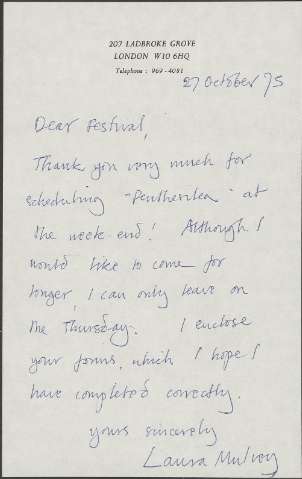 207 LADBROKE GROVE
LONDON W10 6HQ
Telephone : 969-4081
27 October 75
Dear Festival,
Thank you very much for
scheduling "Penthesilea" at
the week-end! Although I
would like to come for
longer, I can only leave on
the Thursday. I enclose
your forms, which I hope I
have completed correctly.
yours sincerely
Laura Mulvey